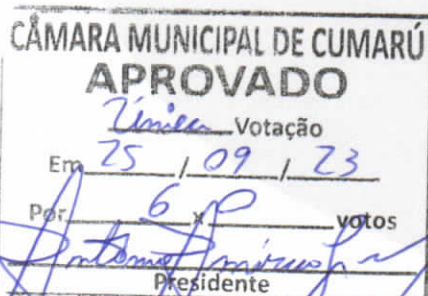 CÂMARA MUNICIPAL DE CUMARÚ
APROVADO
Única Votação
Em 25 / 09 / 23
Por 6 x 0 votos
Presidente